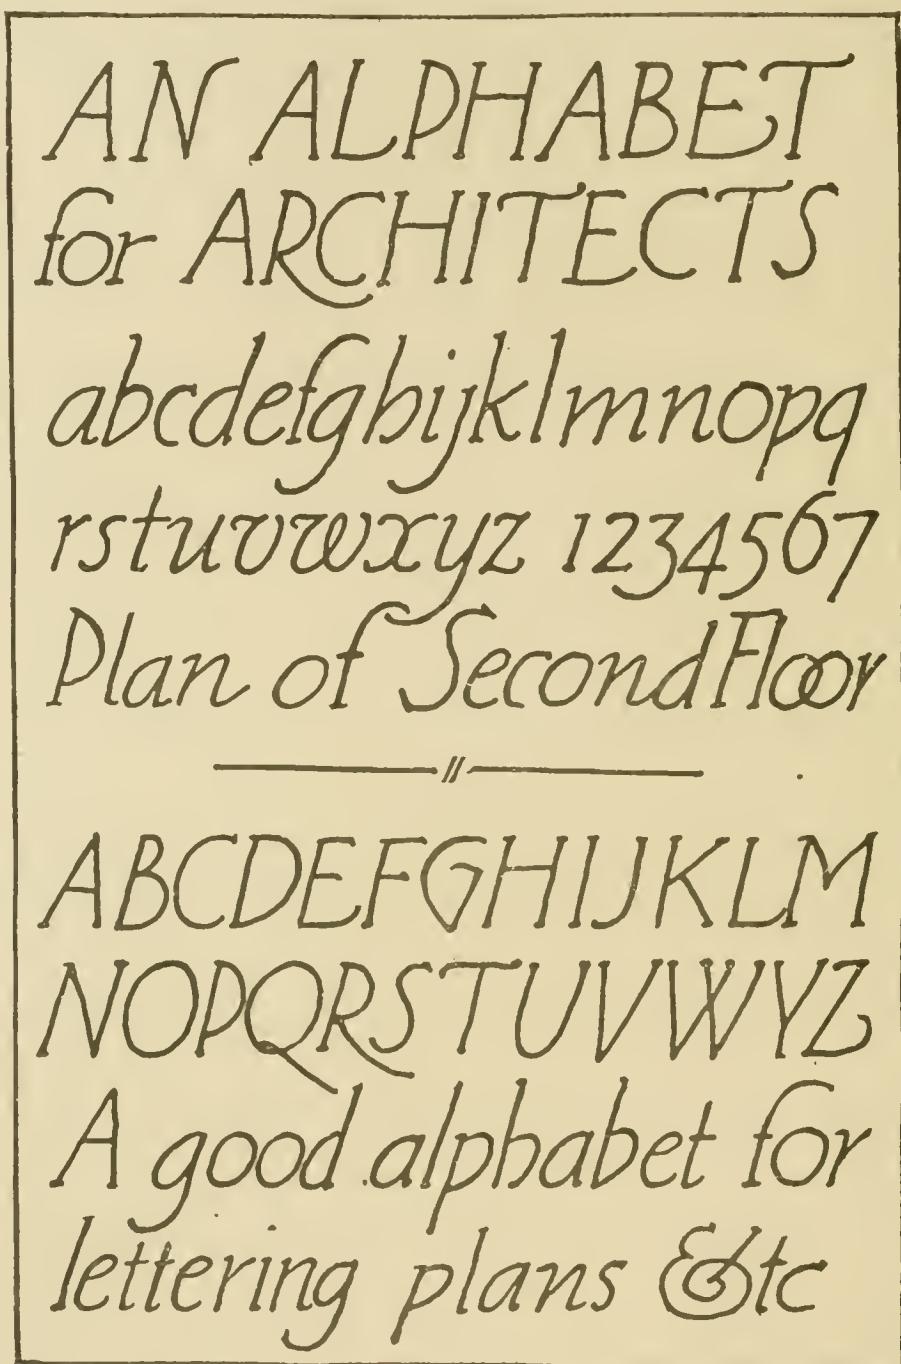 AN ALPHABET
for ARCHITECTS
abcdefghijklmnopq
rstuvwxyz 1234567
Plan of Second Floor
ABCDEFGHIJKLM
NOPQRSTUVWYZ
A good alphabet for
lettering plans &tc